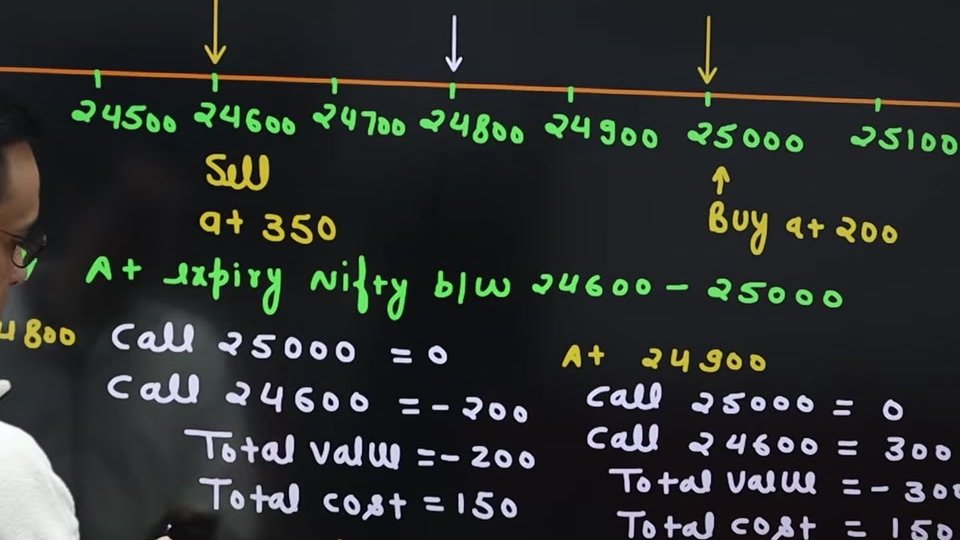 24500 24600 24700 24800 24900 25000 25100
Sell
at 350
Buy at 200
At expiry Nifty b/w 24600 - 25000
Call 25000 = 0
Call 24600 = -200
Total value = -200
Total cost = 150
At 24900
Call 25000 = 0
Call 24600 = 300
Total value = -300
Total cost = 150